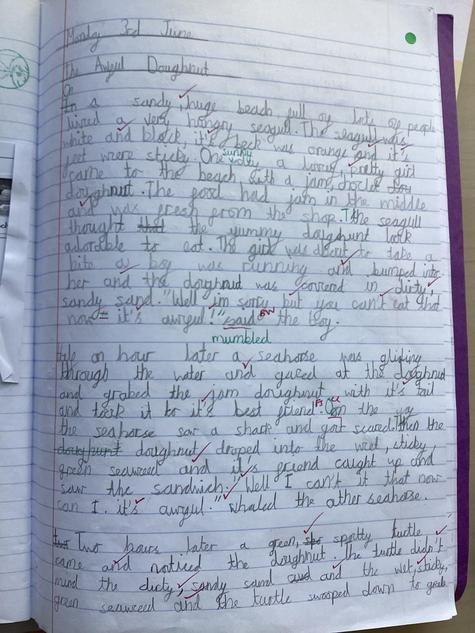 Monday 3rd June
The Awful Doughnut
On
In a sandy, huge beach full of lots of people
lived a very hongry seagull. The seagull was
white and black, it's beck was orange and it's
feet were sticky. One sunny a lovely pretty girl
came to the beach with a jam,
doughnut. The food had jam in the middle
and was fresh from the shop. The seagull
thought that the yummy doughnut look
adorable to eat. The girl was about to take a
bite a boy was running and bumped into
her and the doughnud was covered in dirty,
sandy sand. "Well im sorry but you can't eat that
now it's awful!" said the boy.
mumbled
an hour later a seahorse was gliding
through the water and gazed at the doughnud
and grabed the jam doughnut with it's tail
and took it to it's best friend. On the
the seahorse saw a shark and got scared then the
doughnut doughnut droped into the wet, sticky,
green seaweed and it's friend caught up and
saw the sandwich. "Well I can't it that now
can I. it's awful." Whaled the other seahorse.
Two hours later a green, spotty turtle
came and noticed the doughnut. the turtle didn't
mind the dirty, sandy sand and and the wet, sticky,
green seaweed and the turtle swooped down to grab